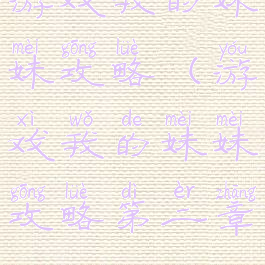 游戏我的妹
mèi gōng lüè yóu
妹攻略（游
xì wǒ de mèi mèi
戏我的妹妹
gōng lüè dì èr zhāng
攻略第二章